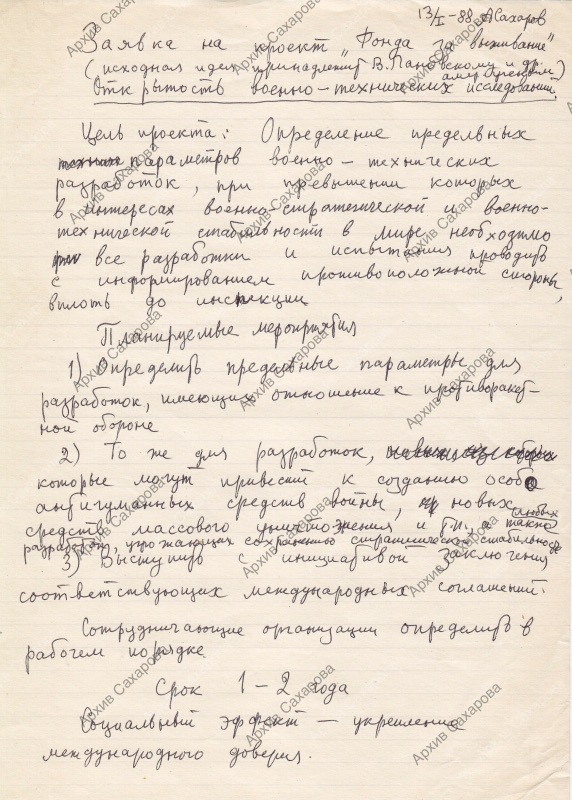 13/I-88 АСахаров
Заявка на проект „Фонда за выживание"
(исходная идея принадлежит В. Пановскому и др.
амер. ученым)
Открытость военно-технических исследований.
Цель проекта: Определение предельных
параметров военно-технических
разработок, при превышении которых
в интересах военно-стратегической и военно-
технической стабильности в мире необходимо
все разработки и испытания проводить
с информированием противоположной стороны,
вплоть до инспекции
Планируемые мероприятия
1) Определить предельные параметры для
разработок, имеющих отношение к противоракет-
ной обороне
2) То же для разработок,
которые могут привести к созданию особо
антигуманных средств войны, новых
средств массового уничтожения и т.п., а также любых
разработок, угрожающих сохранению стратегической стабильности
3) Выступить с инициативой заключения
соответствующих международных соглашений.
Сотрудничающие организации определить в
рабочем порядке.
Срок 1-2 года
Социальный эффект — укрепление
международного доверия.
Архив Сахарова